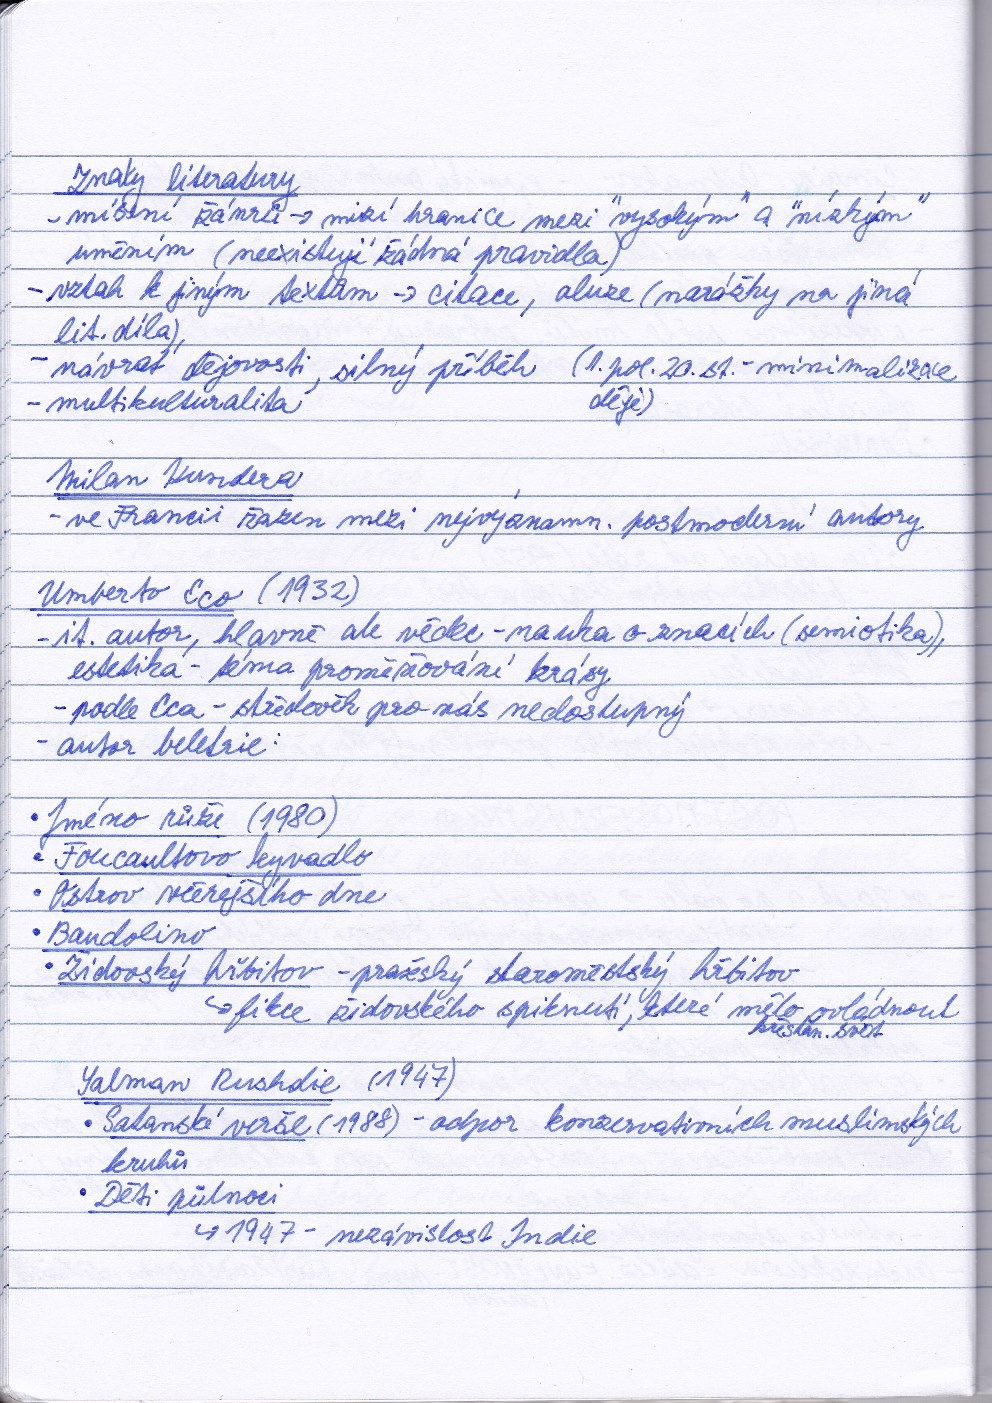 Znaky literatury
- míšení žánrů → mizí hranice mezi "vysokým" a "nízkým"
uměním (neexistují žádná pravidla)
- vztah k jiným textům → citace, aluze (narážky na jiná
lit. díla),
- návrat dějovosti, silný příběh (1. pol. 20. st. - minimalizace
děje)
- multikulturalita
Milan Kundera
- ve Francii řazen mezi nejvýznamn. postmoderní autory
Umberto Eco (1932)
- it. autor, hlavně ale vědec - nauka o znacích (semiotika),
estetika - téma proměňování krásy
- podle Eca - středověk pro nás nedostupný
- autor beletrie:
• Jméno růže (1980)
• Foucaultovo kyvadlo
• Ostrov včerejšího dne
• Baudolino
• Židovský hřbitov - pražský staroměstský hřbitov
↳ fikce židovského spiknutí, které mělo ovládnout
křesťan. svět
Salman Rushdie (1947)
• Satanské verše (1988) - odpor konzervativních muslimských
kruhů
• Děti půlnoci
↳ 1947 - nezávislost Indie